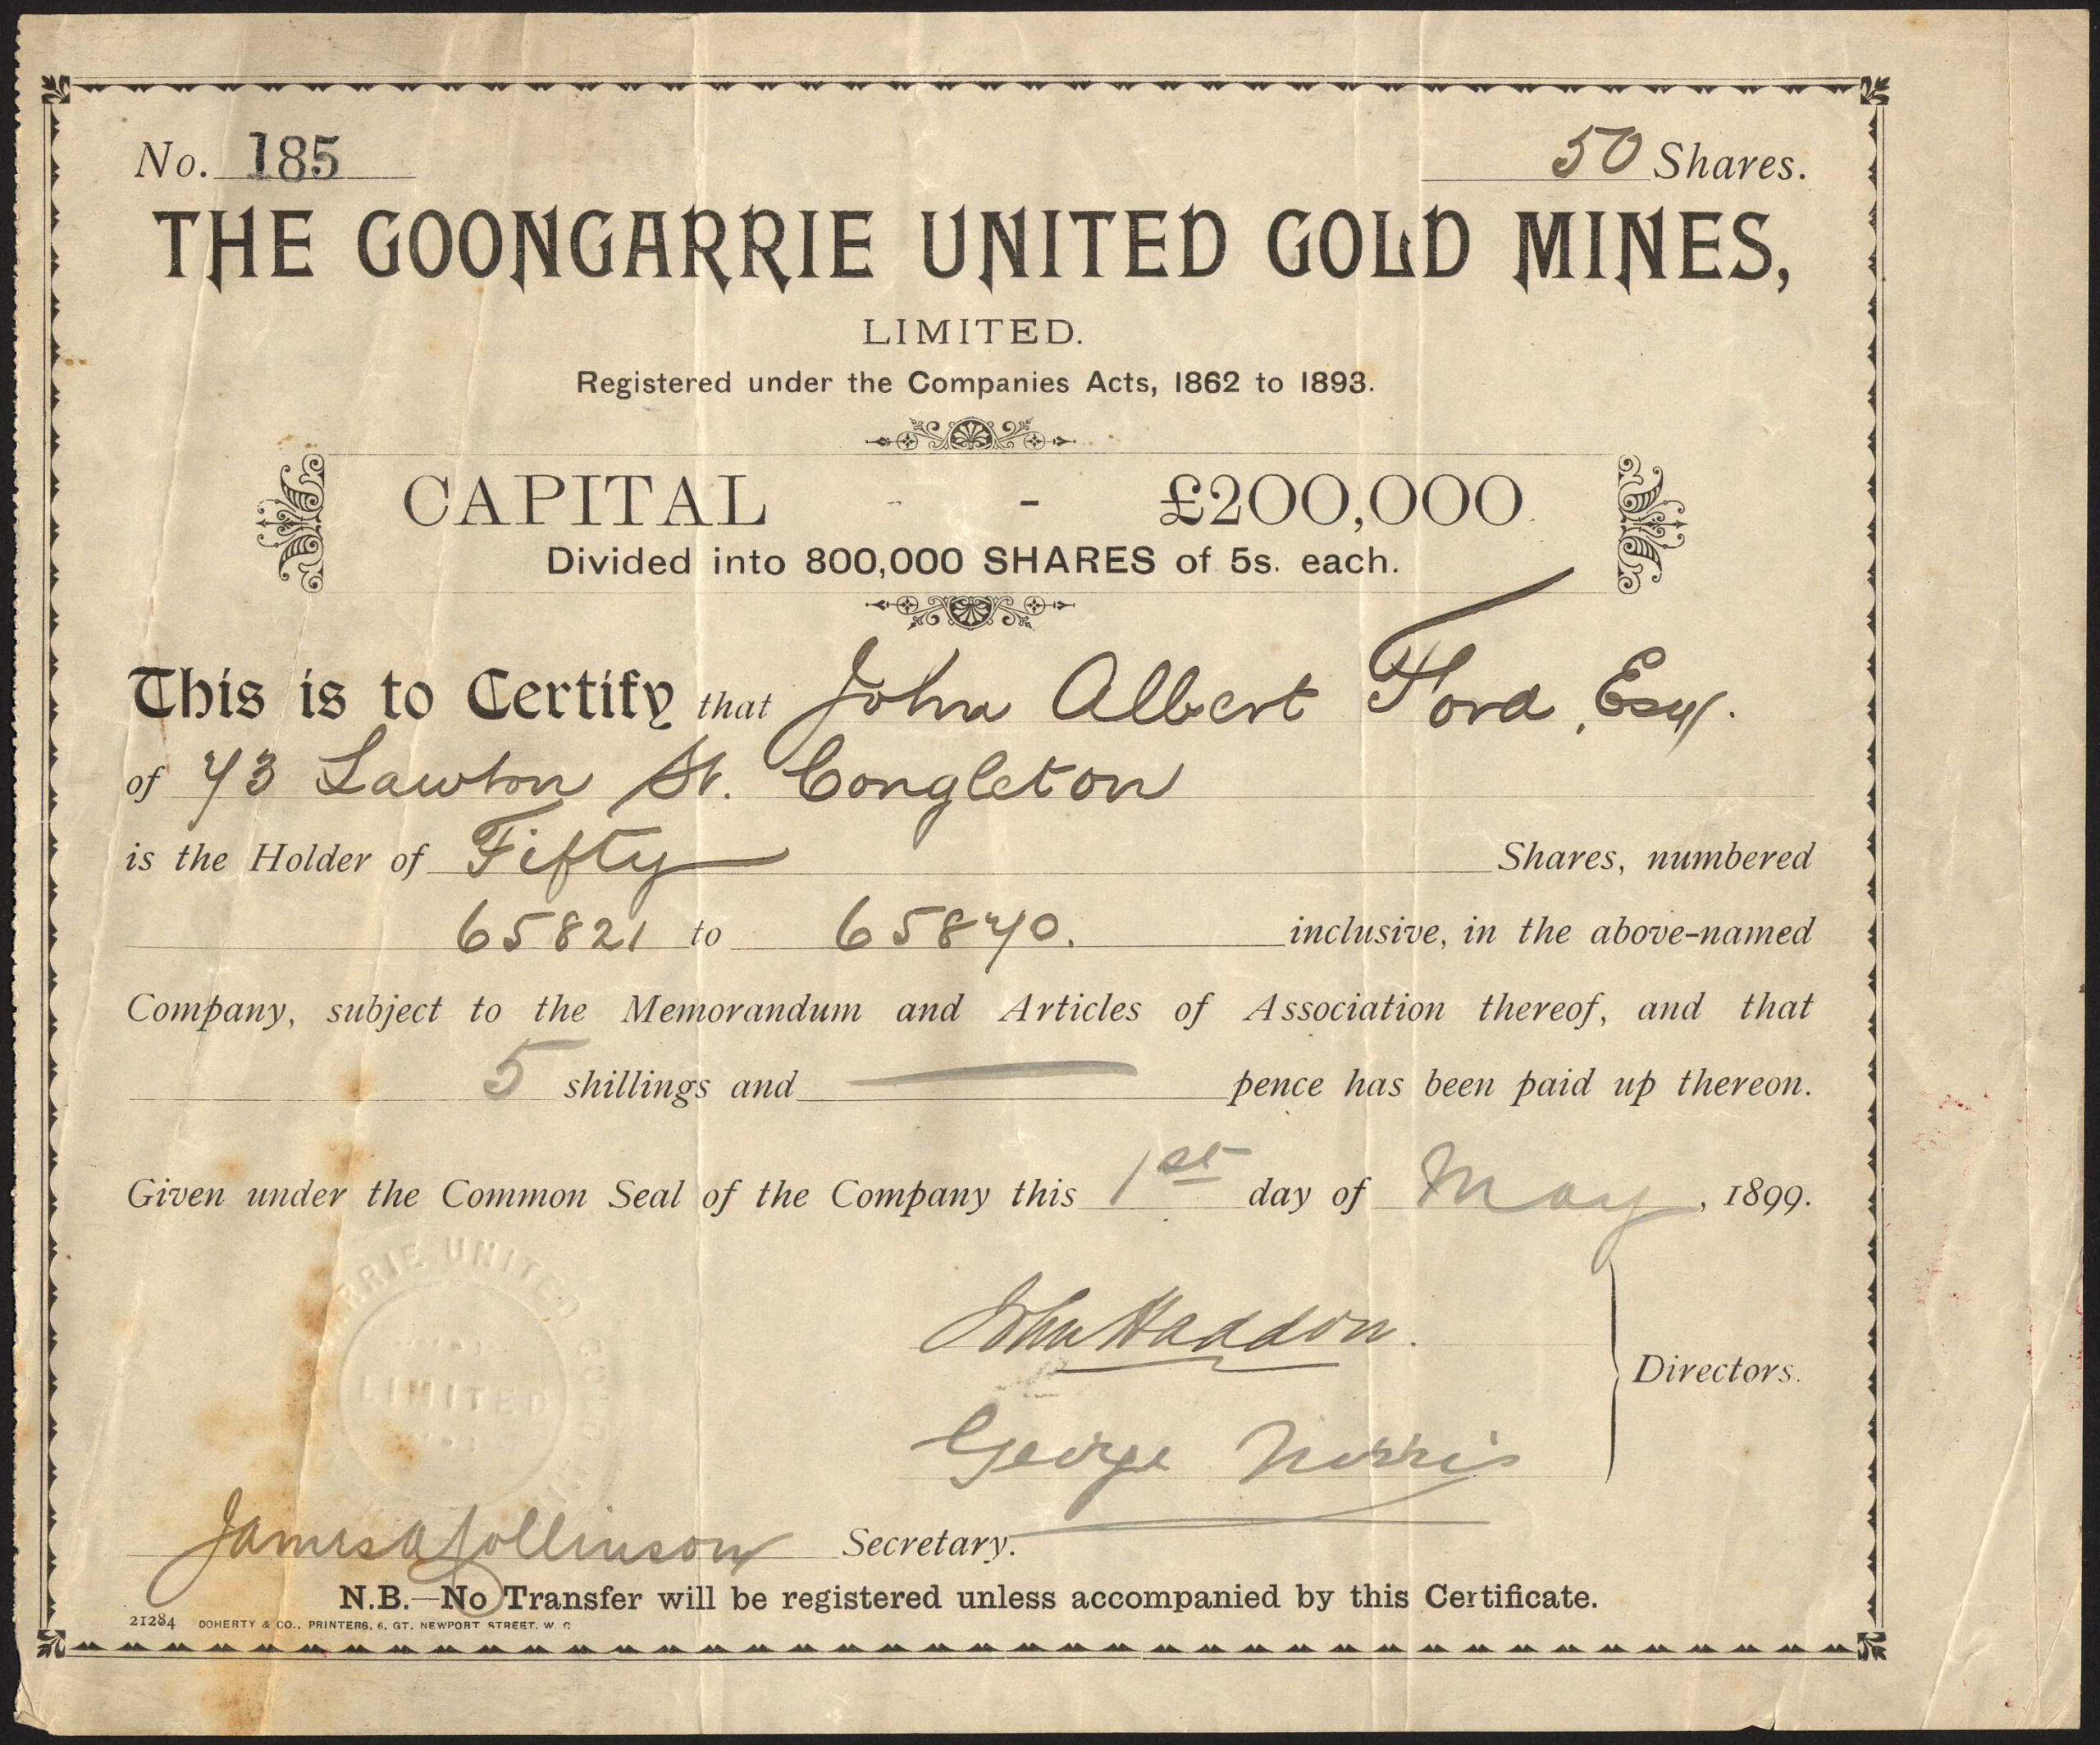 No. 185
50 Shares.
THE GOONGARRIE UNITED GOLD MINES,
LIMITED.
Registered under the Companies Acts, 1862 to 1893.
CAPITAL - - £200,000
Divided into 800,000 SHARES of 5s. each.
This is to Certify that John Albert Ford, Esq.
of 73 Lawton St. Congleton
is the Holder of Fifty Shares, numbered
65821 to 65870. inclusive, in the above-named
Company, subject to the Memorandum and Articles of Association thereof, and that
5 shillings and — pence has been paid up thereon.
Given under the Common Seal of the Company this 1st day of May, 1899.
RRIE UNITED GOLD
LIMITED
John Haddon.
Directors.
George Norris
James A Collinson Secretary.
N.B.—No Transfer will be registered unless accompanied by this Certificate.
21284 DOHERTY & CO., PRINTERS, 6, GT. NEWPORT STREET. W C